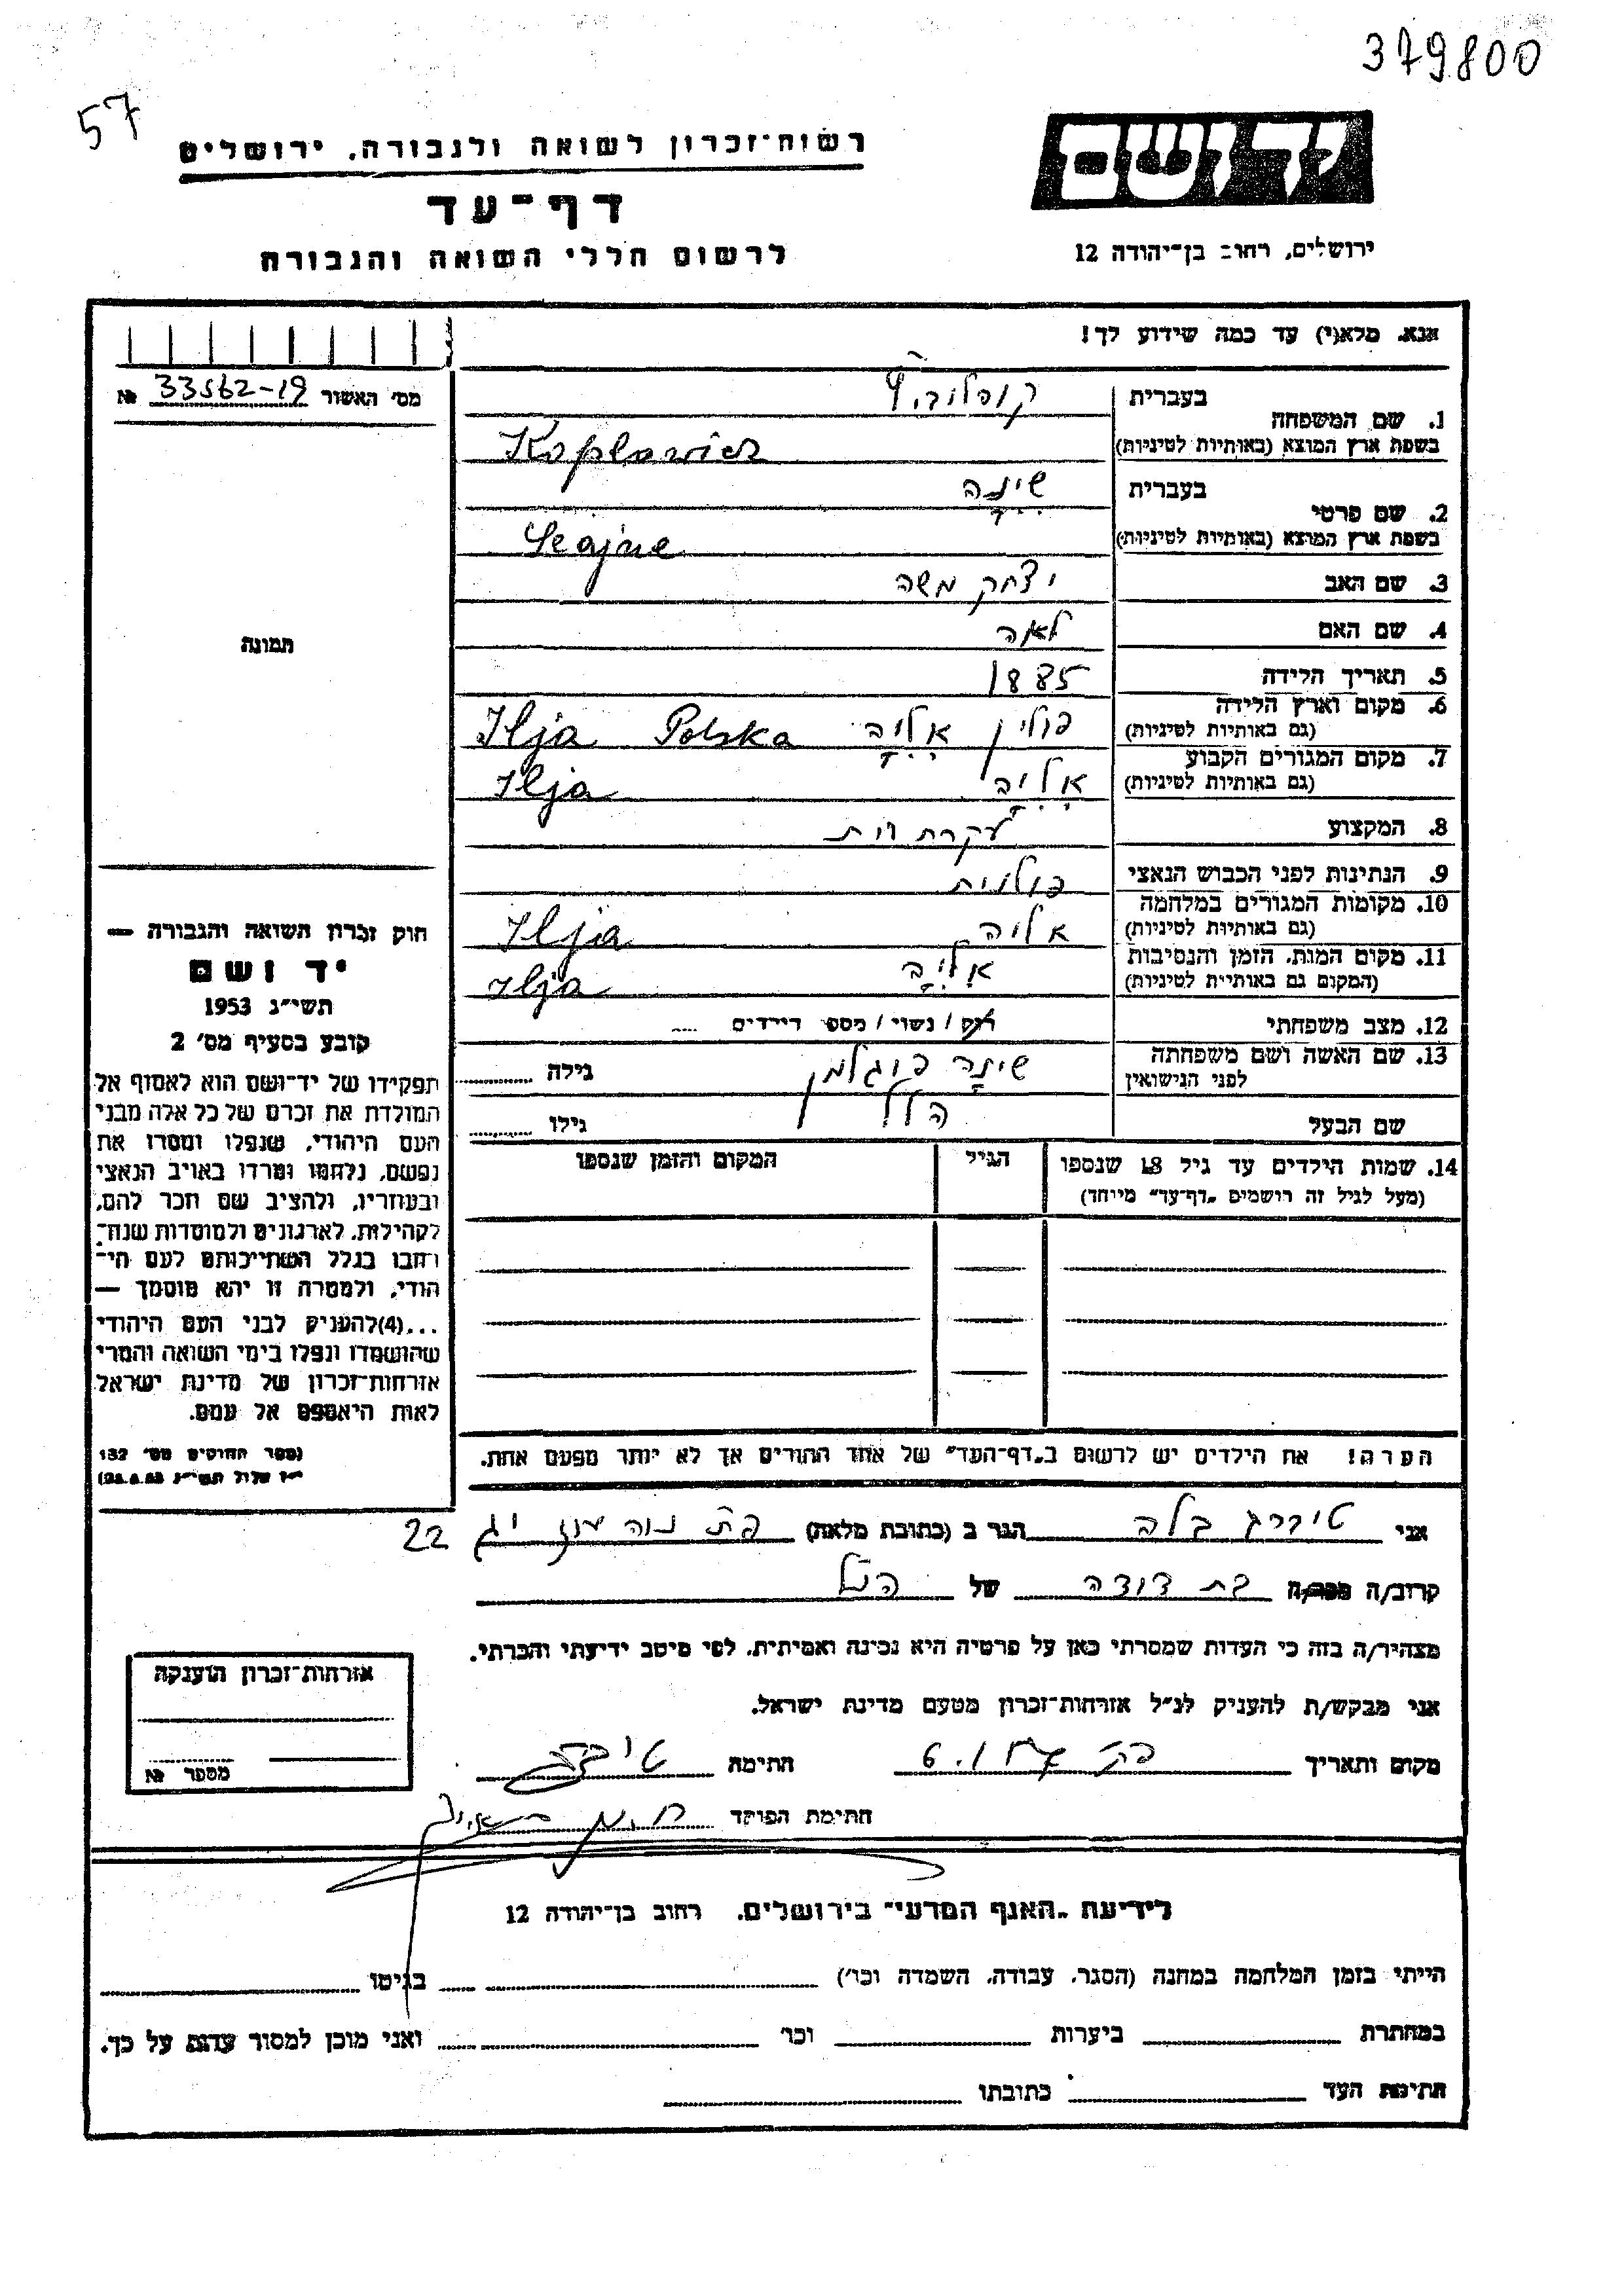 379800
57
יד ושם
ירושלים, רחוב בן־יהודה 12
רשות־זכרון לשואה ולגבורה, ירושלים
דף־עד
לרשום חללי השואה והגבורה
אנא, מלא(י) עד כמה שידוע לך!
מס׳ האשור 33562-19 №
1. שם המשפחה
בעברית
בשפת ארץ המוצא (באותיות לטיניות) Koplowicz
2. שם פרטי
בעברית שינה
בשפת ארץ המוצא (באותיות לטיניות) Seajne
3. שם האב יצחק משה
4. שם האם לאה
5. תאריך הלידה 1885
6. מקום וארץ הלידה
(גם באותיות לטיניות) פולין אליה Polska Ilja
7. מקום המגורים הקבוע
(גם באותיות לטיניות) אליה Ilja
8. המקצוע עקרת בית
9. הנתינות לפני הכבוש הנאצי פולנית
10. מקומות המגורים במלחמה
(גם באותיות לטיניות) אליה Ilja
11. מקום המות, הזמן והנסיבות
(המקום גם באותיות לטיניות) אליה Ilja
12. מצב משפחתי רוק / נשוי / מספר הילדים
13. שם האשה ושם משפחתה
לפני הנישואין שינה פוגלמן גילה
שם הבעל הלל גילו
14. שמות הילדים עד גיל 18 שנספו
(מעל לגיל זה רושמים „דף־עד״ מיוחד)
הגיל
המקום והזמן שנספו
הערה! את הילדים יש לרשום ב„דף־העד״ של אחד ההורים אך לא יותר מפעם אחת.
תמונה
חוק זכרון השואה והגבורה —
יד ושם
תשי״ג 1953
קובע בסעיף מס׳ 2
תפקידו של יד־ושם הוא לאסוף אל
המולדת את זכרם של כל אלה מבני
העם היהודי, שנפלו ומסרו את
נפשם, נלחמו ומרדו באויב הנאצי
ובעוזריו, ולהציב שם וזכר להם,
לקהילות, לארגונים ולמוסדות שנח־
רבו בגלל השתייכותם לעם הי־
הודי, ולמטרה זו יהא מוסמך —
...(4) להעניק לבני העם היהודי
שהושמדו ונפלו בימי השואה והמרי
אזרחות־זכרון של מדינת ישראל
לאות היאספם אל עמם.
(ספר החוקים מס׳ 132
י״ז אלול תשי״ג 28.8.53)
אני טיברג בלה הגר ב (כתובת מלאה) פת נוה עוז יג 22
קרוב/ה מכר/ה בת דודה של הנ״ל
מצהיר/ה בזה כי העדות שמסרתי כאן על פרטיה היא נכונה ואמיתית, לפי מיטב ידיעתי והכרתי.
אני מבקש/ת להעניק לנ״ל אזרחות־זכרון מטעם מדינת ישראל.
מקום ותאריך חתימה
חתימת הפוקד
אזרחות־זכרון הוענקה
מספר №
לידיעת „האגף המדעי״ בירושלים, רחוב בן־יהודה 12
הייתי בזמן המלחמה במחנה (הסגר, עבודה, השמדה וכו׳) בגיטו
במחתרת ביערות וכו׳ ואני מוכן למסור עדות על כך.
חתימת העד כתובתו